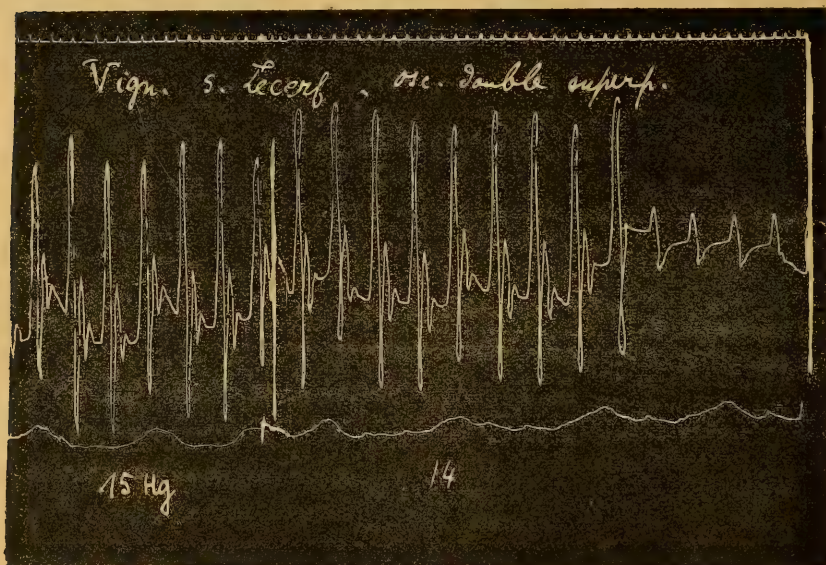 Vign. s. Lecerf, osc. double superp.
15 Hg
14